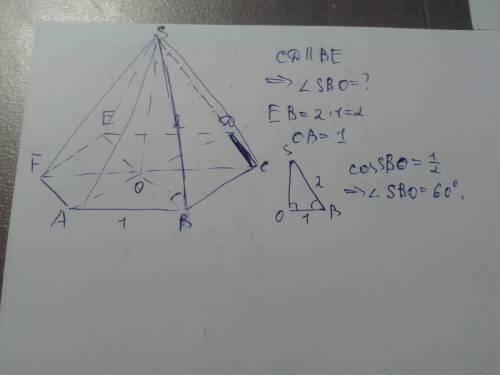 S
E
D
2
F
O
C
A
1
B
CD || BE
⇒ ∠SBO = ?
EB = 2·1 = 2
OB = 1
S
2
O
1
B
cosSBO = 1/2
⇒ ∠SBO = 60°.